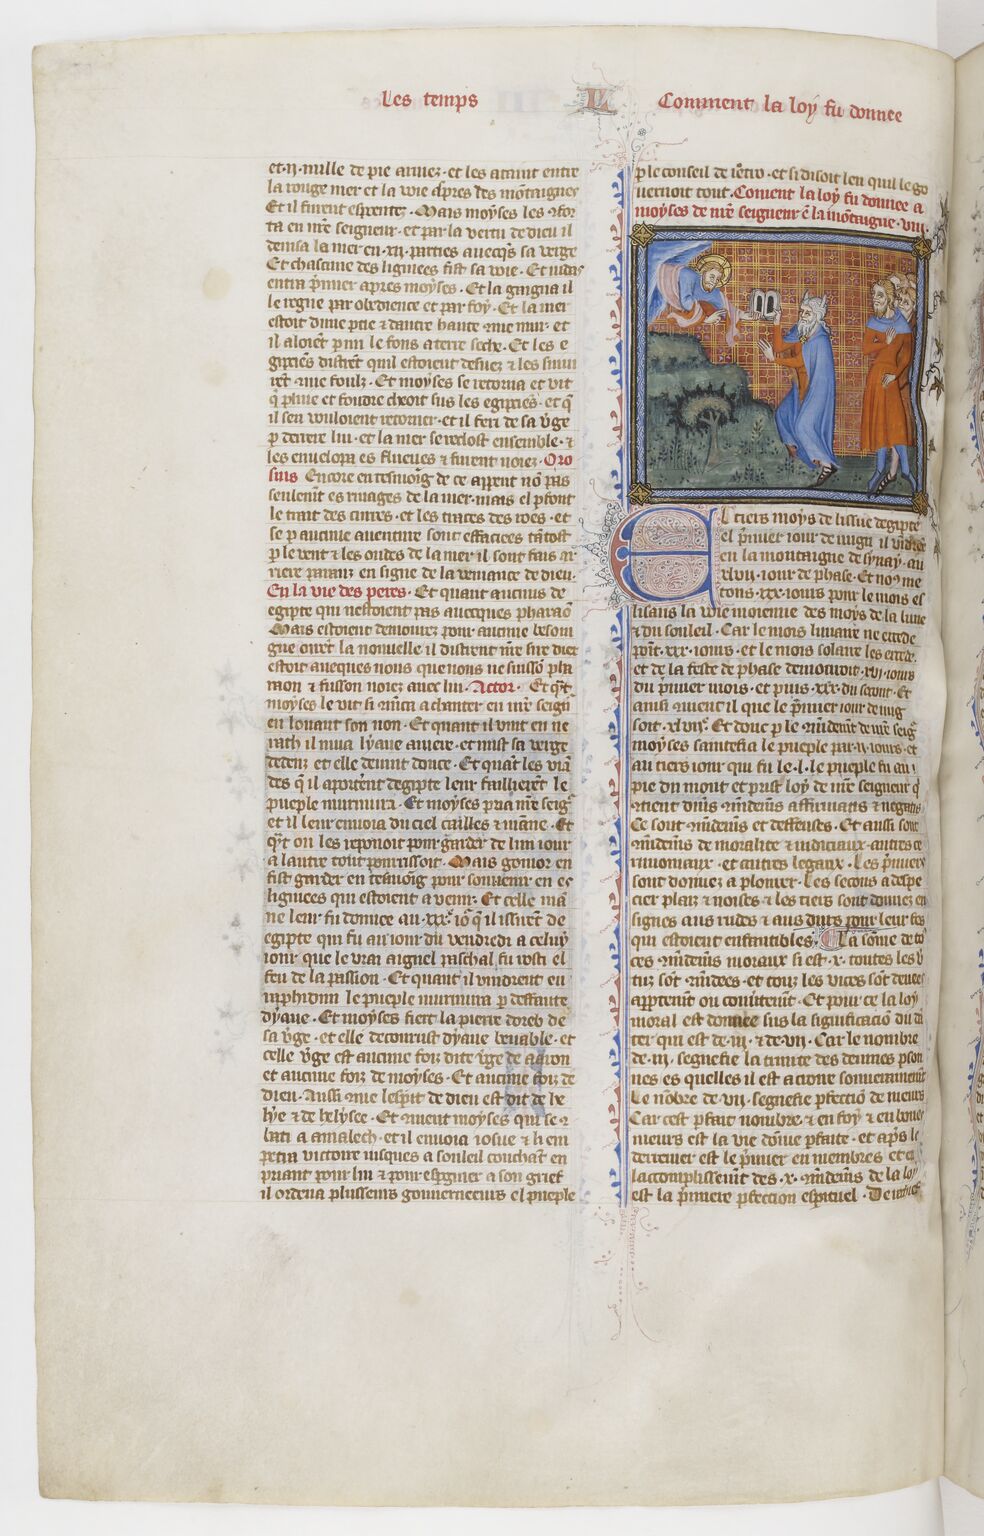 Les temps
L
Comment la loy fu donnee
et .ij. mille de pie armez . et les ataint entre
la rouge mer et la voie dpres des mōtaignes
Et il furent espentez . Mais moyses les ꝯfor
ta en nr̄e seigneur . et par la vertu de dieu il
deuisa la mer en .xij. parties auecq̄s sa verge
Et chascune des lignees fist sa voie . Et iudas
entra p̄mier apres moyses . Et la gaigna il
le regne par obedience et par foy . Et la mer
estoit dune ptie ⁊ dautre haute ꝯme mur . et
il aloiēt p mi le fons a terre seche . Et les e
gipciēs distrēt quil estoient desuez ⁊ les suiui
rēt ꝯme foulz . Et moyses se retorna et vit
q̄ pluie et foudre cheoit sus les egipciēs . et q̄
il sen vouloient retorner . et il feri de sa v̄ge
p derriere lui . et la mer se reclost ensemble . ⁊
les enuelopa es flueues ⁊ furent noiez . Oro
sius Encore en tesmoīg de ce appent nō pas
seulemt̄ es riuages de la mer . mais el pfont
le trait des curres . et les traces des roes . et
se p aucune auenture sont effaciees tātost
p le vent ⁊ les ondes de la mer il sont fais ar
riere paranz en signe de la veniance de dieu .
En la vie des peres . Et quant aucuns de
egipte qui nestoient pas auecques pharaō
Mais estoient demourez pour aucune besoin
gne oirēt la nouuelle il distrent nr̄e sire diex
estoit auecques nous que nous ne suissō pha
raon ⁊ fusson noiez auec lui . Actor . Et q̄t
moyses le vit si ꝯmēca a chanter en nr̄e seign̄
en louant son non . Et quant il vint en ne
rath il mua lyaue amere . et mist sa verge
dedenz et elle deuint douce . Et quāt les viā
des q̄ il aportēt degipte leur faillierēt le
pueple murmura . Et moyses pria nr̄e seigr̄
et il leur enuoia du ciel cailles ⁊ māne . Et
q̄t on les reponoit pour garder de lun iour
a lautre tout pourrissoit . Mais gomor en
fist garder en tesmoīg pour souuenir en es
lignees qui estoient a venir . Et celle mā
ne leur fu donnee au .xxxe. io' q̄ il issirēt de
egipte qui fu au iour du vendredi a celuy
iour que le vrai aignel paschal fu rosti el
feu de la passion . Et quant il vindrent en
raphidim le pueple murmura p deffaute
dyaue . Et moyses fiert la pierre doreb de
sa v̄ge . et elle decourust dyaue beuable . et
celle v̄ge est aucune foiz dite v̄ge de aaron
et aucune foiz de moyses . Et aucune foiz de
dieu . Aussi ꝯme lesperit de dieu est dit de he
lye ⁊ de helysee . Et ꝯment moyses qui se ꝯ
bati a amalech . et il enuoia iosue ⁊ li em
petra victoire iusques a souleil couchāt en
priant pour lui ⁊ pour espgnier a son grief
il ordena plusseurs gouuerneeurs el pueple
p le conseil de ietro . et si disoit len quil le go
uernoit tout . Coment la loy fu donnee a
moyses de nr̄e seigneur ē la mōtaigne . viij .
El tiers moys de lissue degipte
el p̄mier iour de iuign il vindrēt
en la montaigne de synay . au
xlvij . iour de phase . Et no9 me
tons .xxx. iours pour le mois es
lisans la voie moienne des moys de la lune
⁊ du souleil . Car le mois lunaire ne excede
point .xxx. iours . et le mois solaire les excede .
et de la feste de phase demouroit .xvj. iours
du p̄mier mois . et puis .xxx. du secont . Et
ainsi auient il que le p̄mier iour de iuig
soit .xlvije. Et donc p le ꝯmādemt̄ de nr̄e seigr̄
moyses saintefia le pueple par .ij. iours . et
au tiers iour qui fu le .l. le pueple fu au
pie du mont et prist loy de nr̄e seigneur q̄
ꝯtient diuers ꝯmādemēs affirmatis ⁊ negatis
Ce sont ꝯmādemēs et deffenses . Et aussi sont
ꝯmādemēs de moralite ⁊ iudiciaux . autres ce
rimoniaux . et autres legaux . Les p̄miers
sont donnez a plonter . Les secons a despe
cier plaiz ⁊ noises ⁊ les tiers sont donnez en
signes aus rudes ⁊ aus durs pour leur fes
qui estoient enfantibles . La sōme de to9
ces ꝯmādemēs moraux si est .x. toutes les v̄
tuz sōt ꝯmādees . et touz les vices sōt deueez
apptenāt ou couuitemt̄ . Et pour ce la loy
moral est donnee sus la significaciō du dā
ter qui est de .iij. ⁊ de vij . Car le nombre
de .iij. segnefie la trinite des deuines pson
nes es quelles il est a croire souuerainemēt
Le nōbre de .vij. segnefie pfectiō de meurs
Car cest pfait nombre . ⁊ en foy ⁊ en bones
meurs est la vie dōme pfaite . et ap̄s le
derrenier est le p̄mier en membres et en
lacomplissement des .x. ꝯmādemēs de la loy
est la p̄miere pfection espirituel .